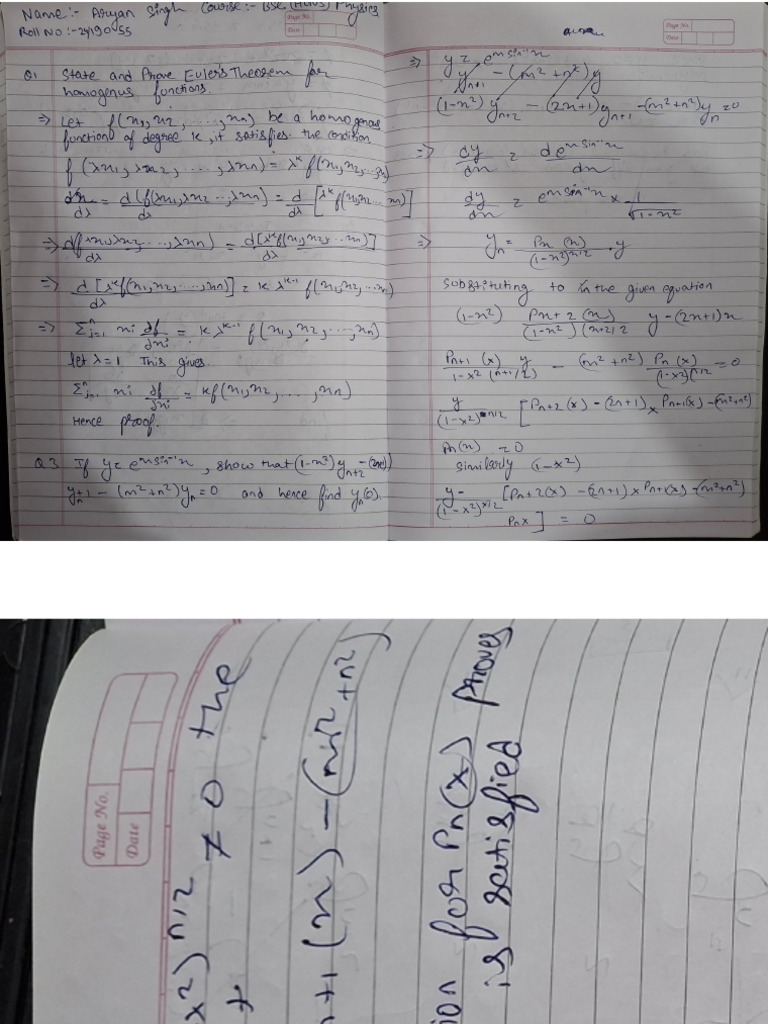 Name:- Aryan Singh Course:- BSc (Hons) Physics
Roll No:-24190055
Page No.
Date
Q1 State and Prove Euler's Theorem for
homogenus functions.
⇒ Let f(x1, x2, ..., xn) be a homogenous
function of degree k, it satisfies the condition
f(λx1, λx2, ..., λxn) = λ^k f(x1, x2, ... xn)
= d(f(λx1, λx2 .., λxn))/dλ = d/dλ [λ^k f(x1, x2 ... xn)]
⇒ df(λx1, λx2, ..., λxn)/dλ = d[λ^k f(x1, x2, ... xn)]/dλ
⇒ d[λ^k f(x1, x2, ..., xn)]/dλ = k λ^(k-1) f(x1, x2, ... xn)
⇒ Σ^n_(j=1) xi df/dxi = k λ^(k-1) f(x1, x2, ..., xn)
let λ=1 This gives
Σ^n_(j=1) xi df/dxi = kf(x1, x2, ..., xn)
Hence proof.
Q3 If y = e^(m sin⁻¹x), show that (1-x²) y_(n+2) -
- (m²+n²)y_n = 0 and hence find y_n(0).
Page No.
Date
⇒ y = e^(m sin⁻¹x)
y_(n+1) - (m²+n²)y
(1-x²) y_(n+2) - (2x+1)y_(n+1) - (m²+n²)y_n = 0
⇒ dy/dx = de^(m sin⁻¹x)/dx
dy/dx = e^(m sin⁻¹x) × 1/√(1-x²)
⇒ y_n = Pn(x)/(1-x²)^(n/2) . y
substituting to in the given equation
(1-x²) Pn+2(x)/(1-x²)(n+2)/2 y - (2x+1)x
Pn+1(x) y/1-x²(n+1/2) - (m²+n²) Pn(x)/(1-x²)^(n/2) = 0
y/(1-x²)^(n/2) [Pn+2(x) - (2n+1)x Pn+1(x) - (m²+n²)
Pn(x) = 0
similarly (1-x²)
y-/(1-x²)^(n/2) [Pn+2(x) - (2n+1)x Pn+1(x) - (m²+n²)
Pnx] = 0
Page No.
Date
x²)^(n/2) ≠ 0 the
n+1(x) - (m²+n²)
ion for Pn(x) proves
is satisfied